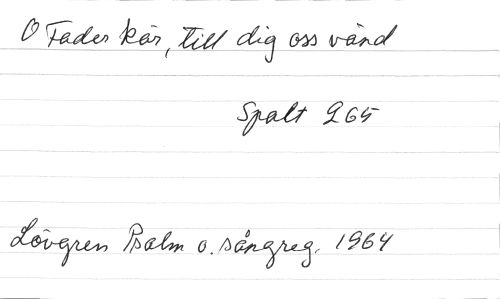 O Fader kär, till dig oss vänd
Spalt 265
Lövgren Psalm o. sångreg. 1964